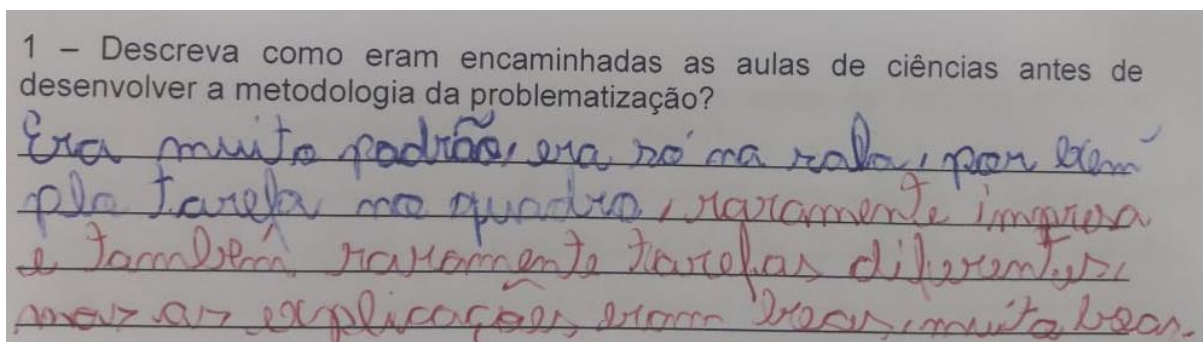 1 – Descreva como eram encaminhadas as aulas de ciências antes de
desenvolver a metodologia da problematização?
Era muito padrão, era só na sala, por exem
plo tarefa no quadro, raramente impresa
e também raramente tarefas diferentes,
mas as explicações eram boas, muito boas.